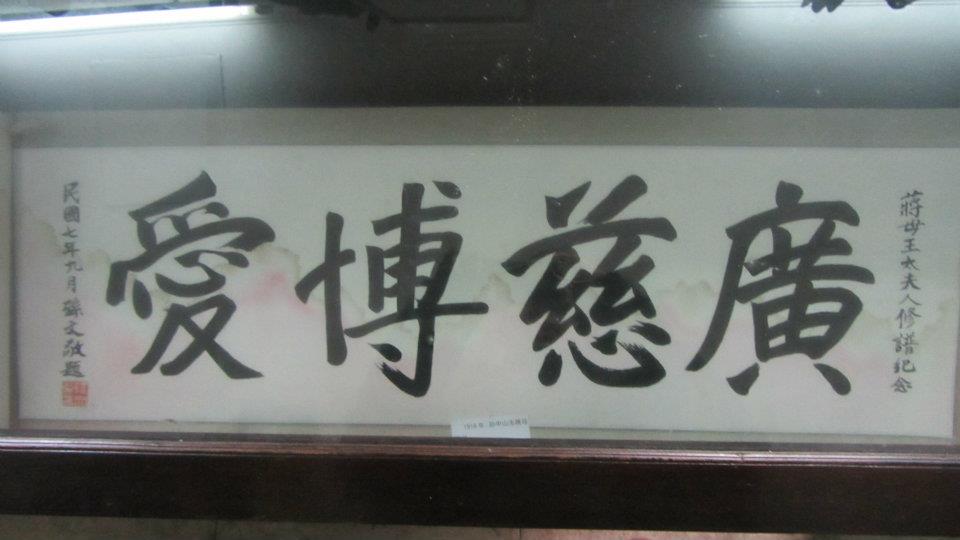 蔣母王太夫人修譜紀念
廣慈博愛
民國七年九月孫文敬題
1918年,孫中山